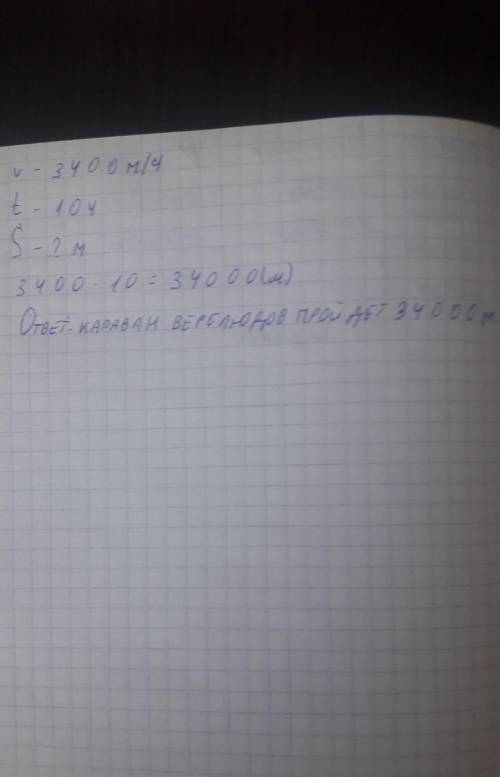 v - 3400 м/ч
t - 10ч
S - ? м
3400 · 10 = 34000(м)
Ответ - караван верблюдов пройдет 34000 м